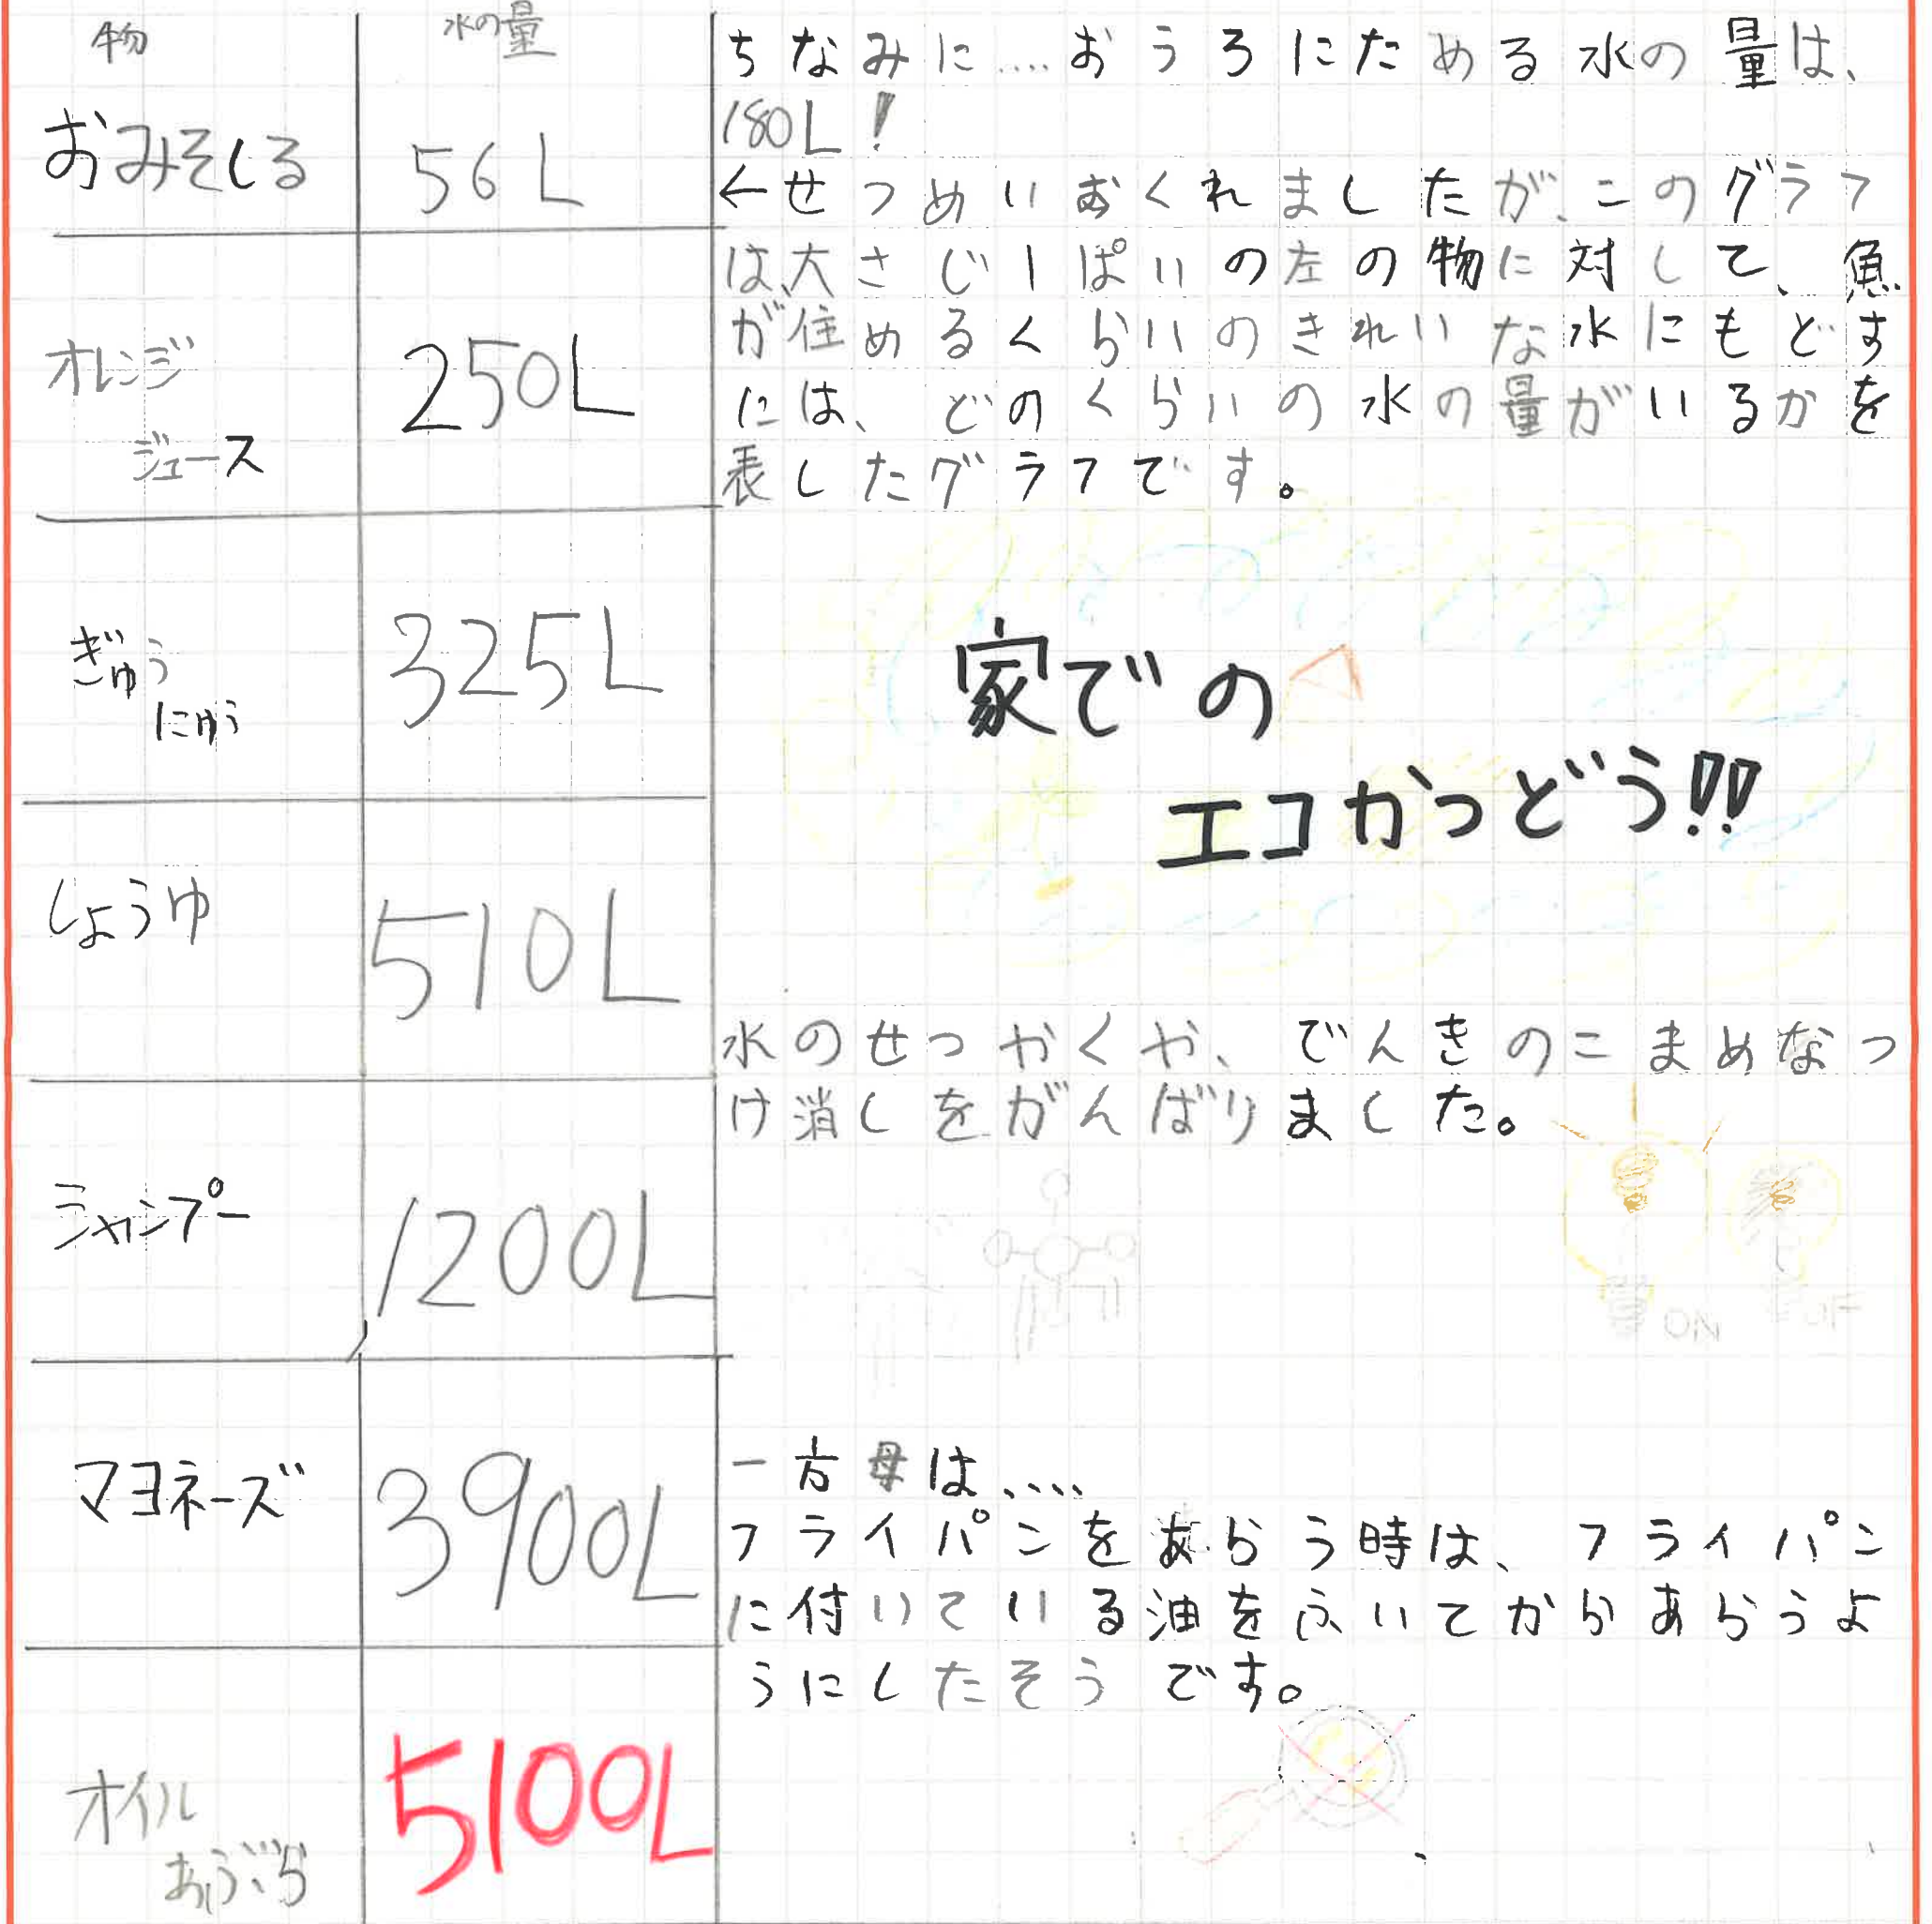 物 水の量
おみそしる 56L
オレンジ
ジュース
250L
ぎゅう
にゅう
325L
しょうゆ
510L
シャンプー
1200L
マヨネーズ
3900L
オイル
あぶら
5100L
ちなみに....おうろにためる水の量は、
180L!
←せつめいおくれましたが、このグラフ
は、大さじ一ぱいの左の物に対して、魚
が住めるくらいのきれいな水にもどす
には、どのくらいの水の量がいるかを
表したグラフです。
家での
エコかつどう!!
水のせつやくや、でんきのこまめなつ
け消しをがんばりました。
ON OFF
一方母は....
フライパンをあらう時は、フライパン
に付いている油をふいてからあらうよ
うにしたそうです。